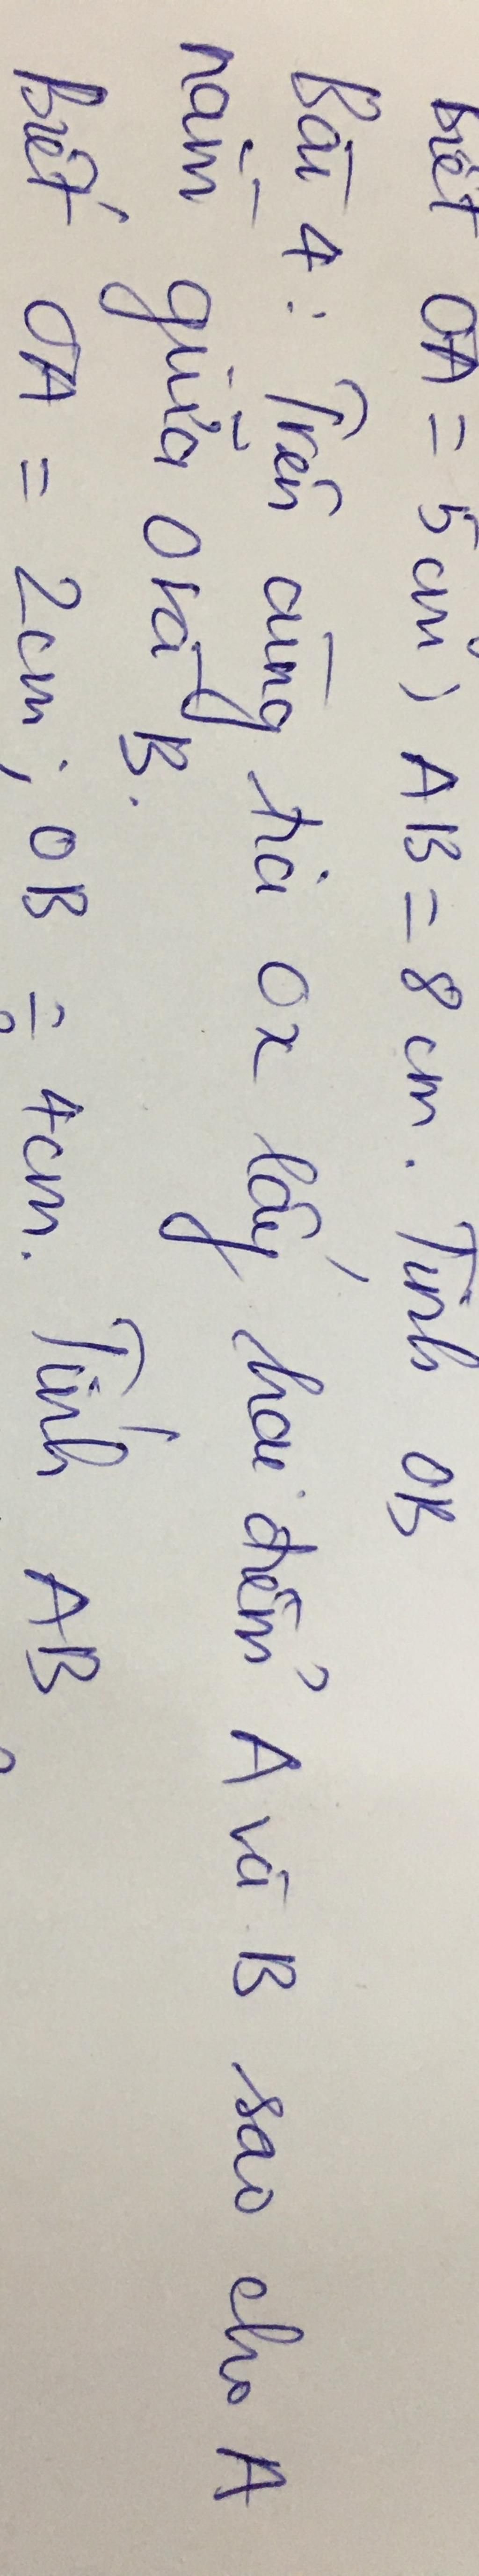 biết OA = 5cm, AB = 8cm. Tính OB
Bài 4: Trên cùng tia Ox lấy hai điểm A và B sao cho A
nằm giữa O và B.
Biết OA = 2cm; OB = 4cm. Tính AB